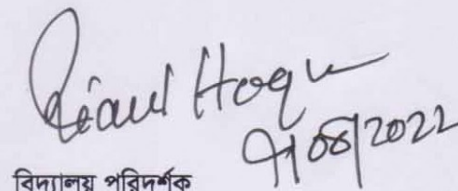 Riaul Hoque
08/2022
বিদ্যালয় পরিদর্শক